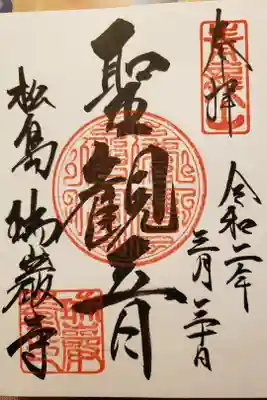 奉拝
令和二年
三月
聖観音
松島 瑞巌寺